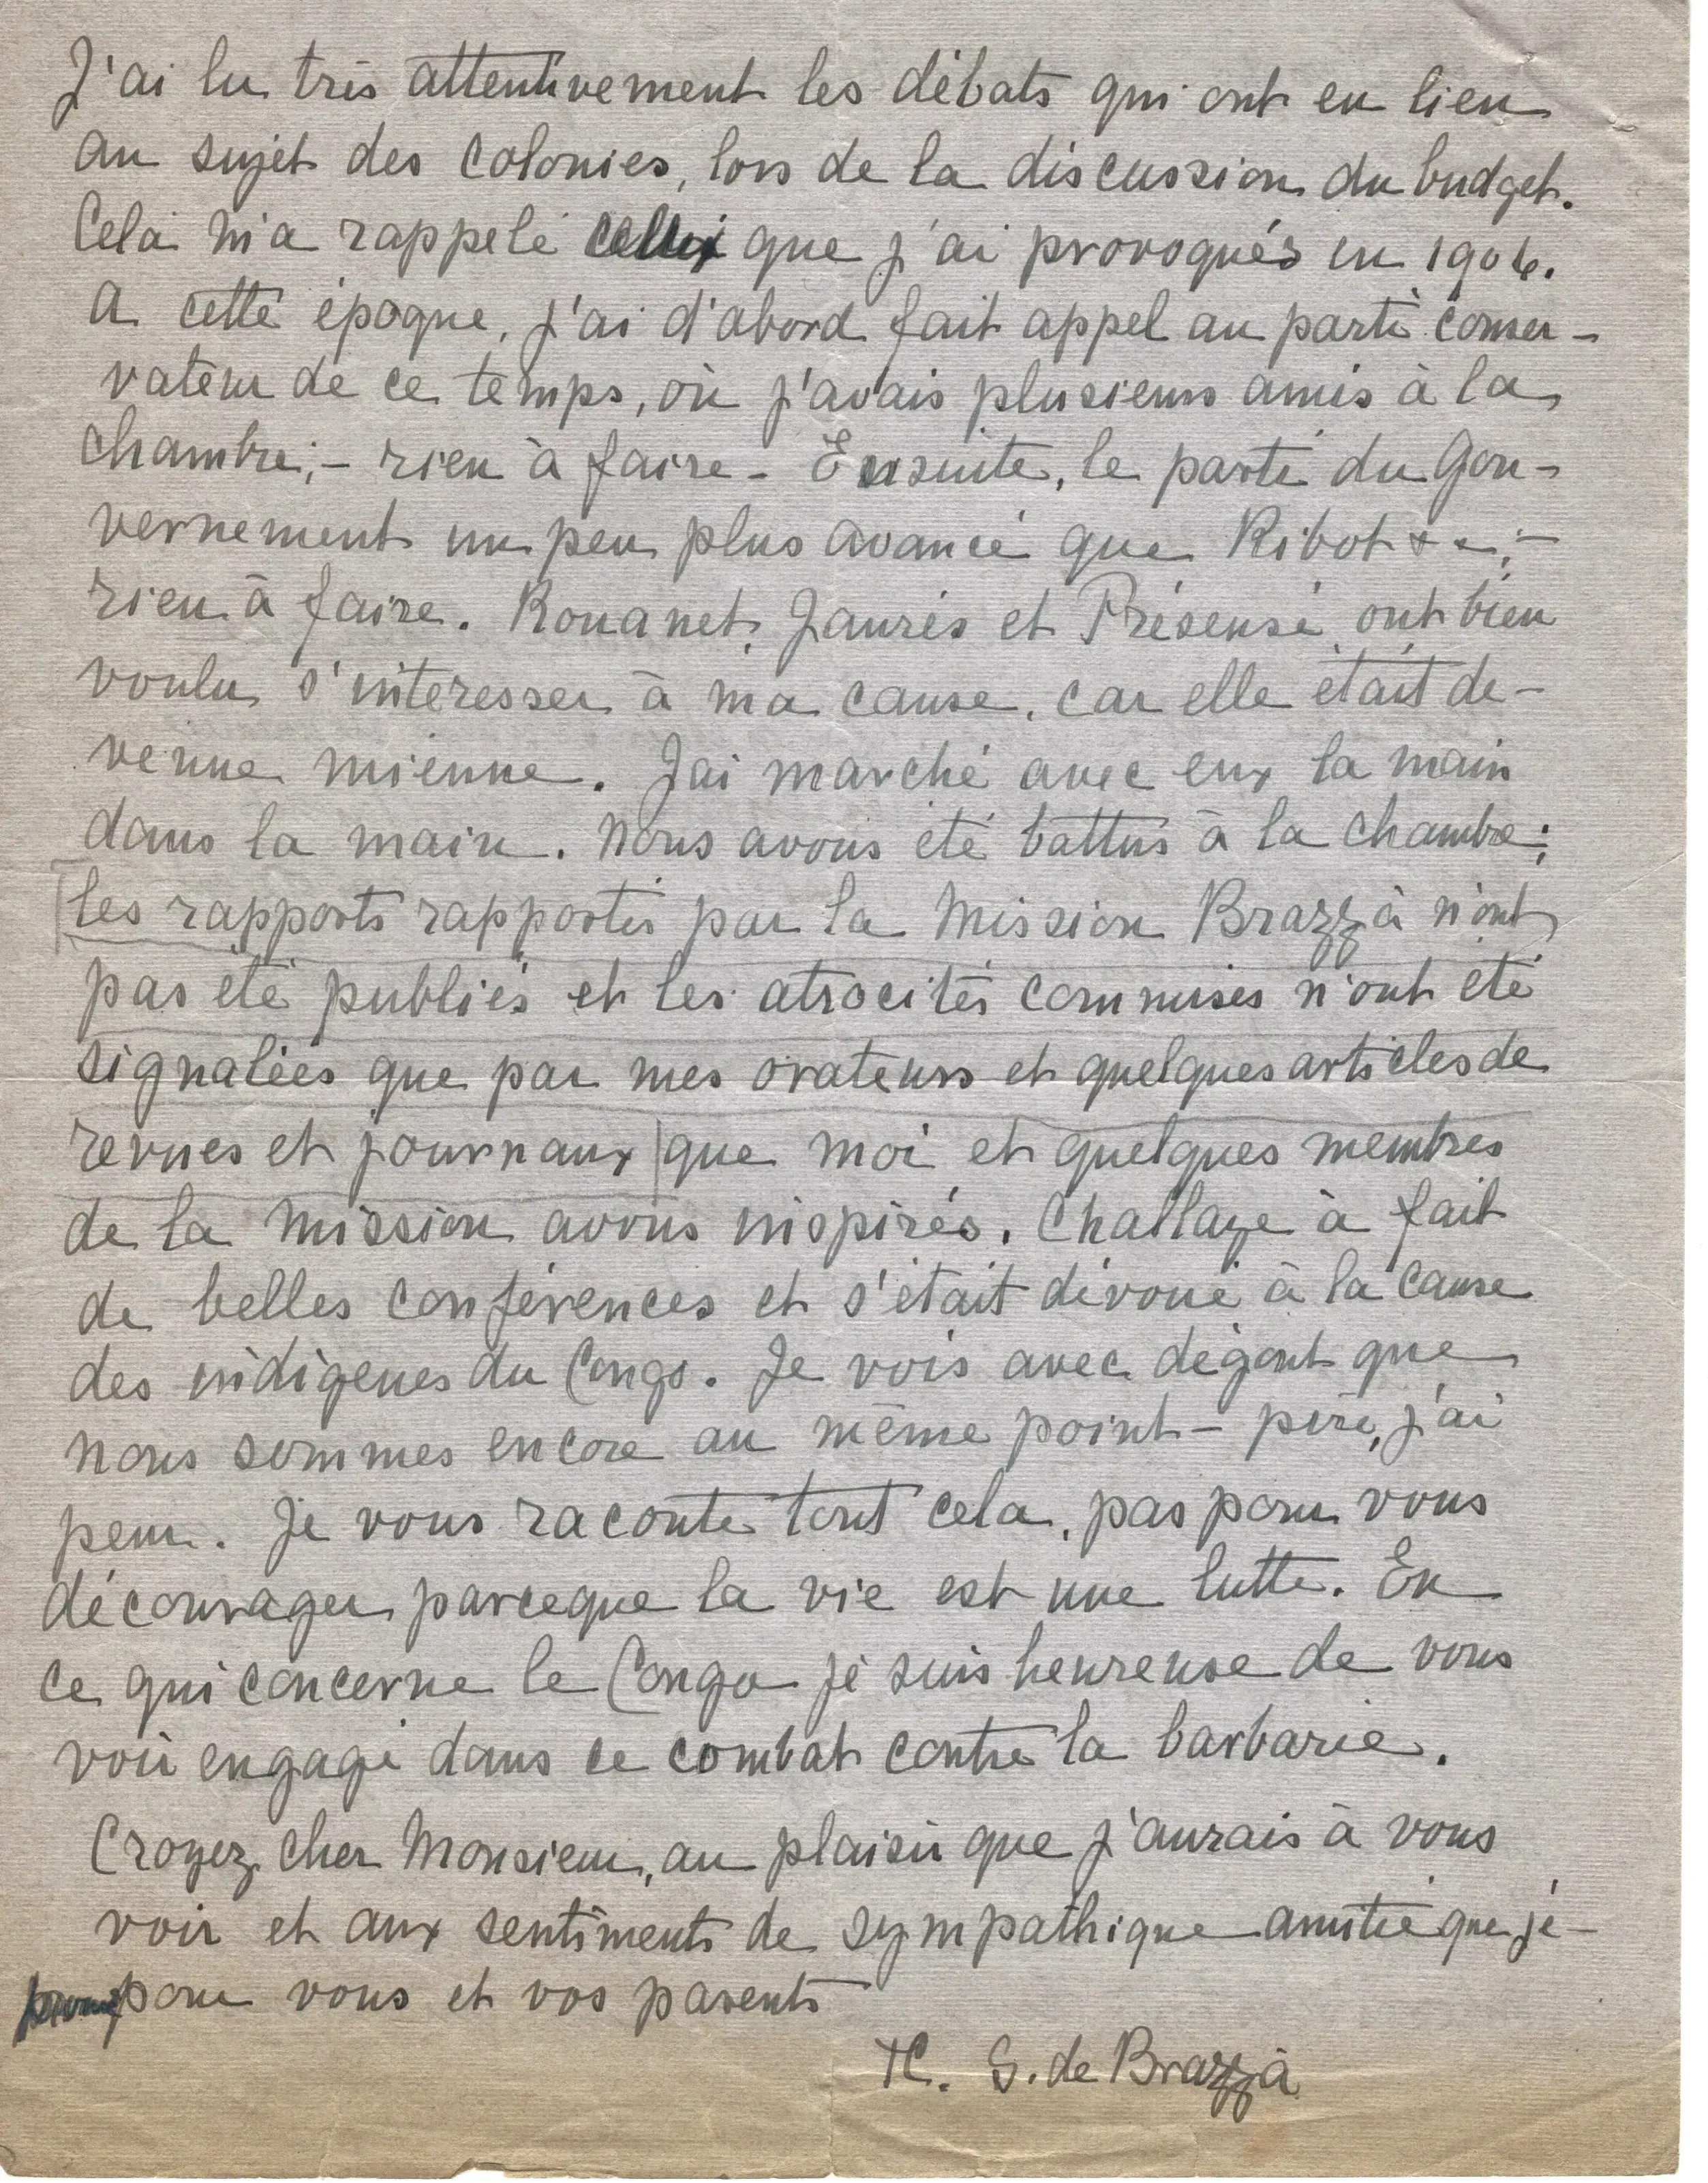 J'ai lu très attentivement les débats qui ont eu lieu
au sujet des colonies, lors de la discussion du budget.
Cela m'a rappelé ceux que j'ai provoqués en 1906.
A cette époque, j'ai d'abord fait appel au parti conser-
vateur de ce temps, où j'avais plusieurs amis à la
chambre; - rien à faire - Ensuite, le parti du Gou-
vernement un peu plus avancé que Ribot -
rien à faire. Rouanet, Jaurès et Présensé ont bien
voulu s'intéresser à ma cause, car elle était de-
venue mienne. J'ai marché avec eux la main
dans la main. Nous avons été battus à la chambre;
les rapports rapportés par la Mission Brazzà n'ont
pas été publiés et les atrocités commises n'ont été
signalées que par mes orateurs et quelques articles de
revues et journaux que moi et quelques membres
de la Mission avons inspirés. Challaye à fait
de belles conférences et s'était dévoué à la cause
des indigènes du Congo. Je vois avec dégout que
nous sommes encore au même point - pire, j'ai
peur. Je vous raconte tout cela, pas pour vous
décourager parceque la vie est une lutte. En
ce qui concerne le Congo je suis heureuse de vous
voir engagé dans ce combat contre la barbarie.
Croyez, cher Monsieur, au plaisir que j'aurais à vous
voir et aux sentiments de sympathique amitié que j'é-
prouve pour vous et vos parents
S. de Brazzà